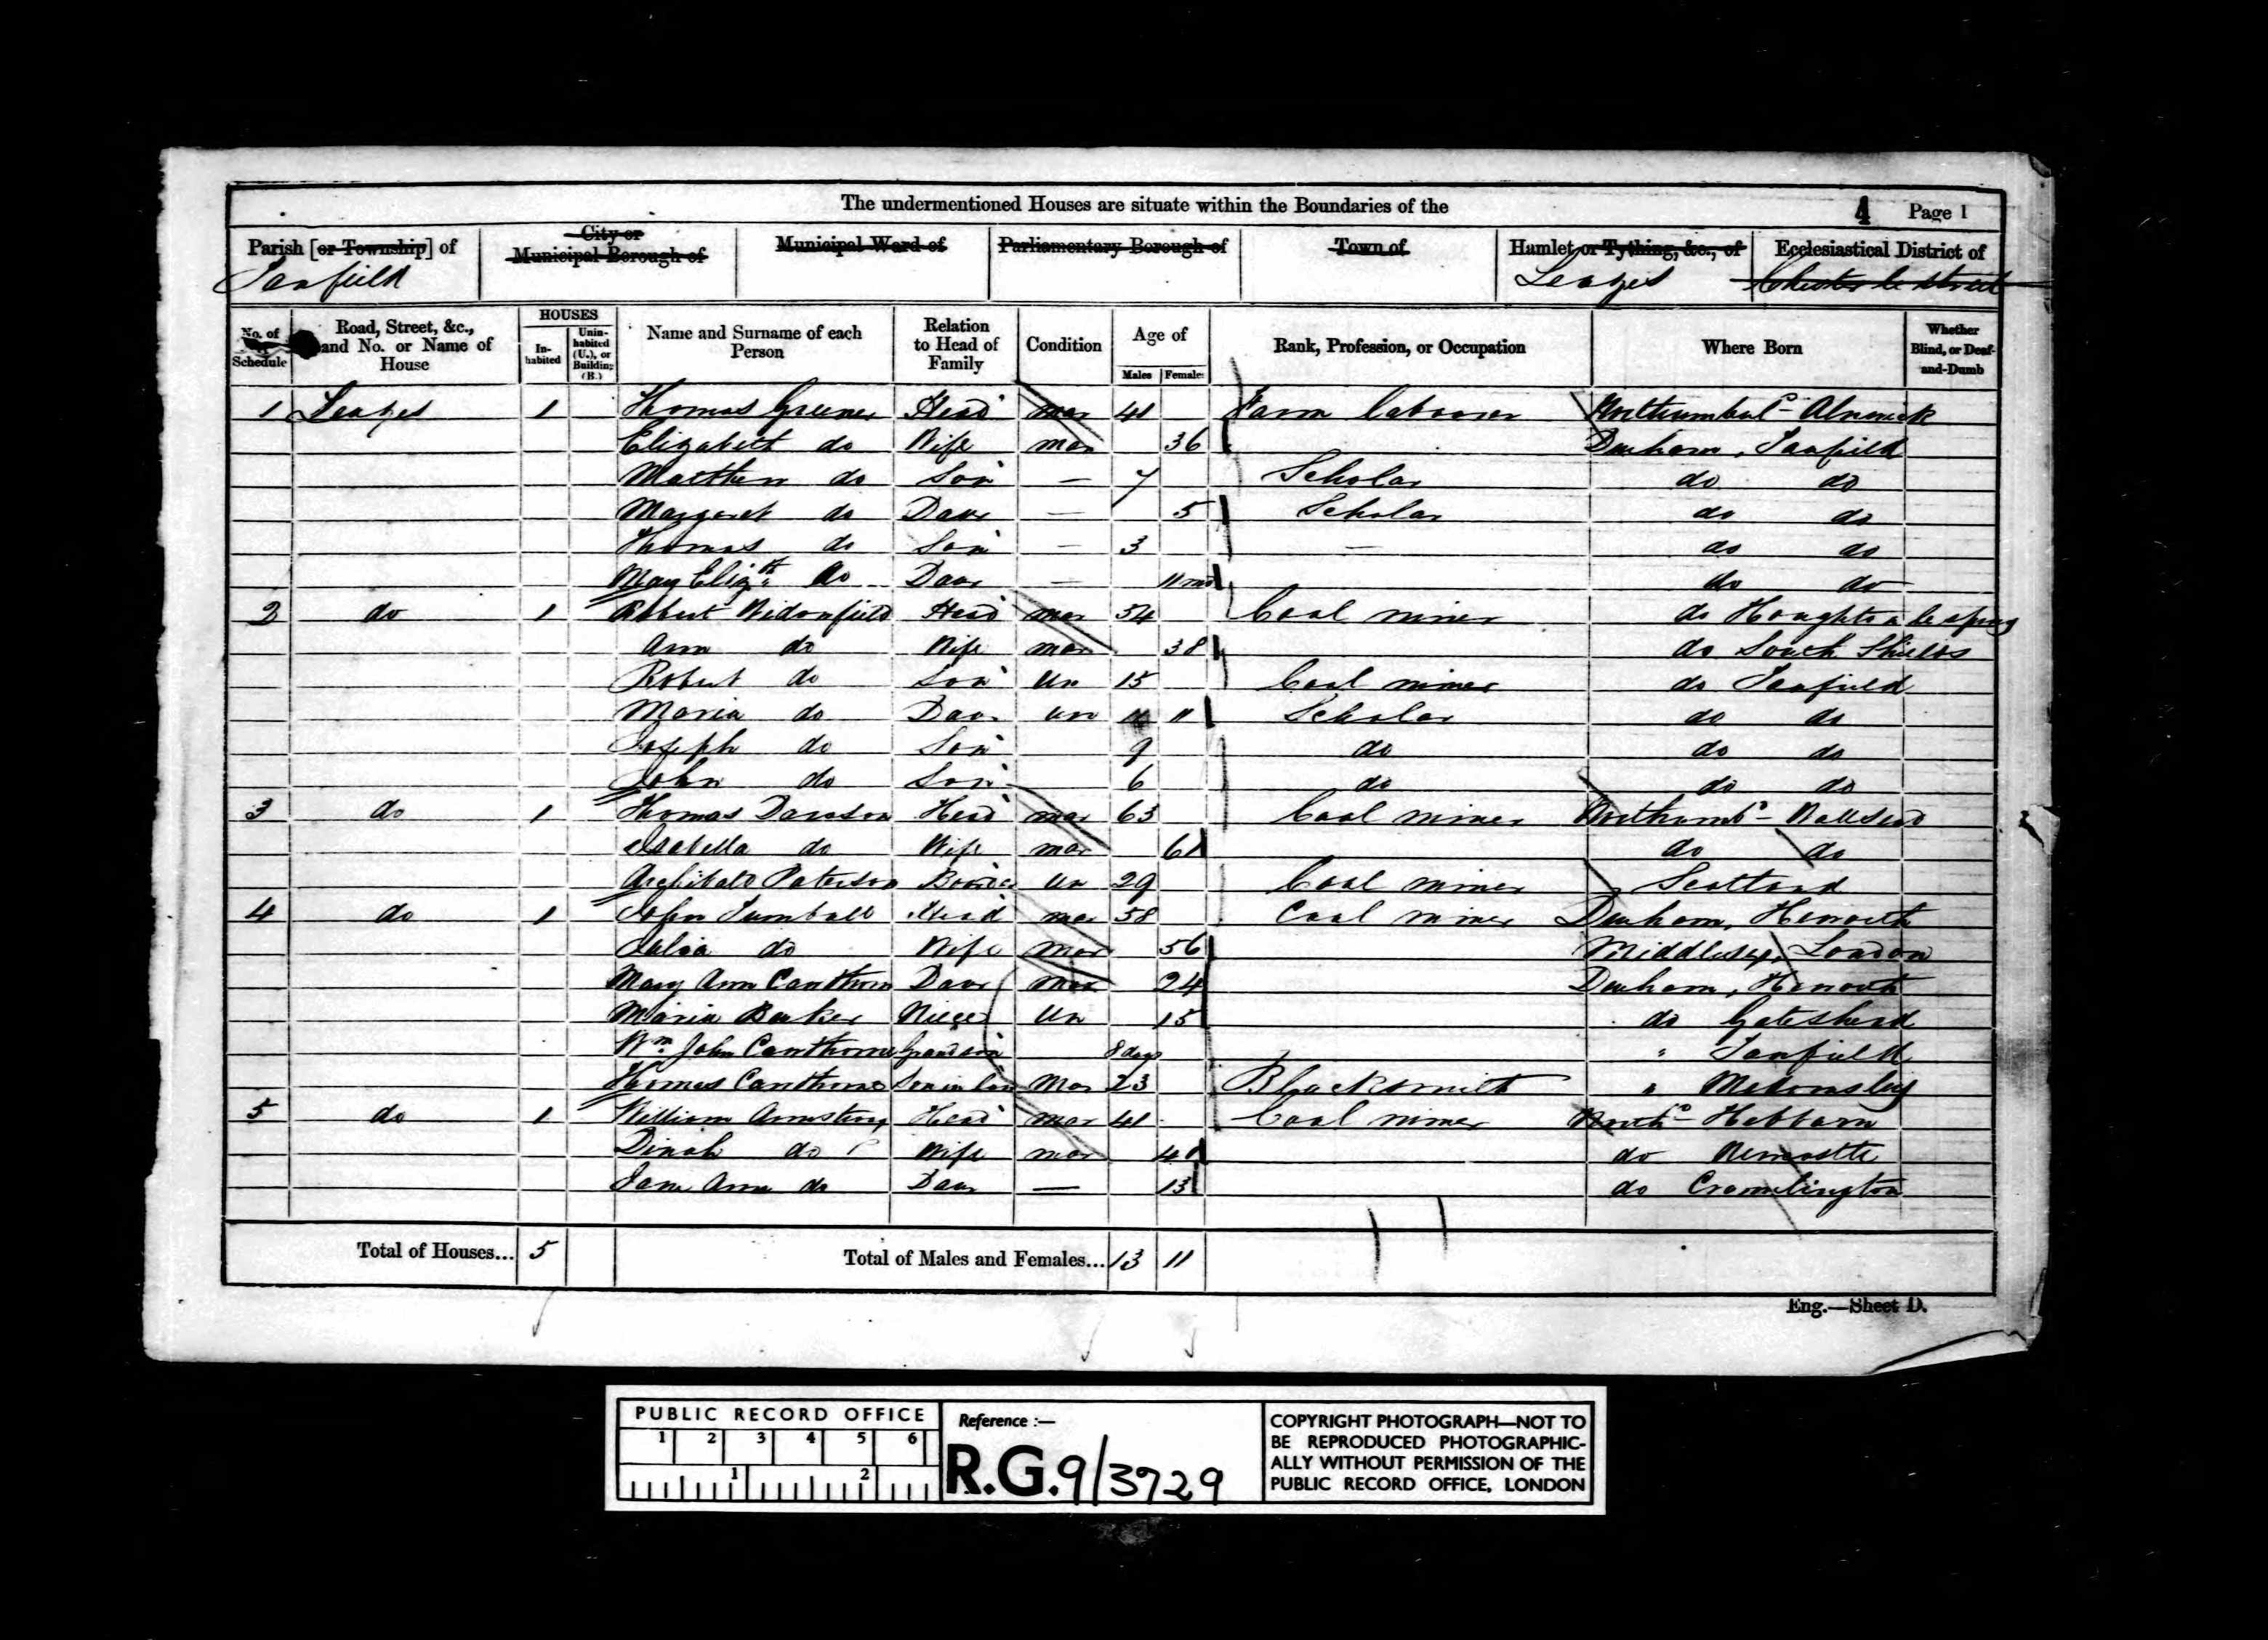 The undermentioned Houses are situate within the Boundaries of the 4 Page 1
Parish [or Township] of City or Municipal Borough of Municipal Ward of Parliamentary Borough of Town of Hamlet or Tything, &c., of Ecclesiastical District of
Tanfield Leazes Chester le street
No. of Schedule Road, Street, &c., and No. or Name of House HOUSES In-habited Unin-habited (U.), or Building (B.) Name and Surname of each Person Relation to Head of Family Condition Age of Males Females Rank, Profession, or Occupation Where Born Whether Blind, or Deaf-and-Dumb
1 Leazes 1 Thomas Greener Head Mar 41 Farm labourer Northumbd Alnwick
Elizabeth do Wife Mar 36 Durham, Tanfield
Matthew do Son — 7 Scholar do do
Margaret do Daur — 5 Scholar do do
Thomas do Son — 3 — do do
May Elizth do Daur — 11 mo do do
2 do 1 Robert Widowfield Head Mar 54 Coal miner do Houghton le spring
Ann do Wife Mar 38 do South Shields
Robert do Son Un 15 Coal miner do Tanfield
Maria do Daur Un 11 11 Scholar do do
Joseph do Son 9 do do do
John do Son 6 do do do
3 do 1 Thomas Dawson Head Mar 63 Coal miner Northumbd Wallsend
Isabella do Wife Mar 61 do do
Archibald Paterson Boarder Un 29 Coal miner Scotland
4 do 1 John Turnbull Head Mar 58 Coal miner Durham, Heworth
Julia do Wife Mar 56 Middlesex, London
Mary Ann Cawthorn Daur Mar 24 Durham, Heworth
Maria Barker Niece Un 15 do Gateshead
Wm John Cawthorne Grandson 8 days " Tanfield
Thomas Cawthorne Son in law Mar 23 Blacksmith " Medomsley
5 do 1 William Armstrong Head Mar 41 Coal miner Northd Hebbarn
Dinah do Wife Mar 41 do Newcastle
Jane Ann do Daur — 13 do Cramlington
Total of Houses... 5 Total of Males and Females... 13 11
Eng.—Sheet D.
PUBLIC RECORD OFFICE
1 2 3 4 5 6
1 2
Reference :—
R.G. 9/3729
COPYRIGHT PHOTOGRAPH—NOT TO
BE REPRODUCED PHOTOGRAPHIC-
ALLY WITHOUT PERMISSION OF THE
PUBLIC RECORD OFFICE, LONDON